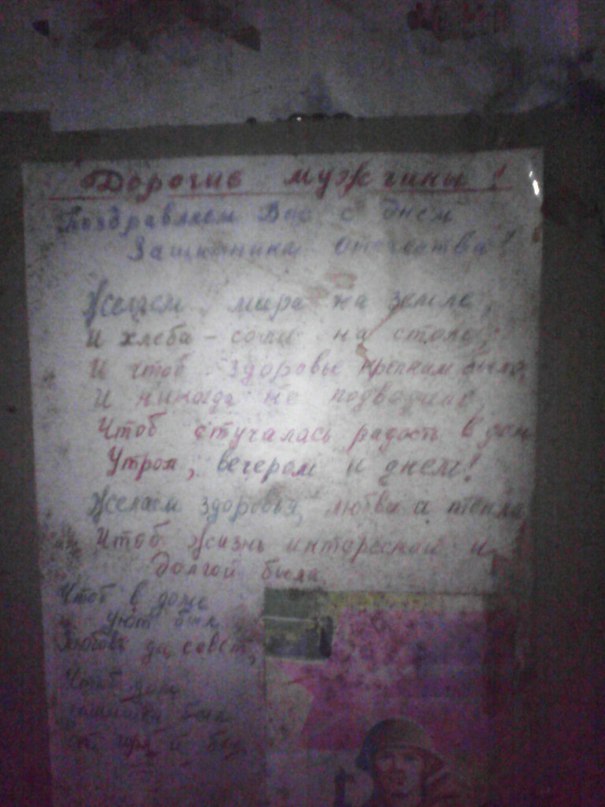 Дорогие мужчины!
Поздравляем Вас с днем
Защитника отечества!
Желаем мира на земле,
И хлеба - соли на столе,
И чтоб здоровье крепким было,
И никогда не подводило
Чтоб стучалась радость в дом
Утром, вечером и днем!
Желаем здоровья, любви и тепла
Чтоб жизнь интересной и
долгой была.
Чтоб в доме
уют был
Любовь да совет,
Чтоб
был
и бед